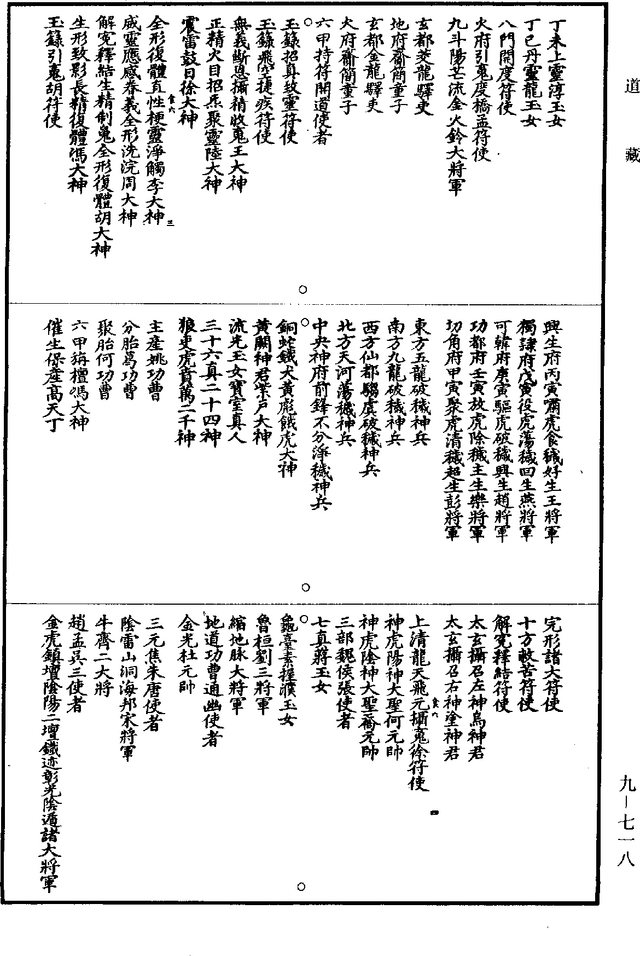 道藏
丁未上靈淳玉女
丁巳丹靈龍玉女
八門開度符使
火府引䰟度橋孟符使
九斗陽芒流金火鈴大將軍
玄都茭龍驛吏
地府齋簡童子
玄都金龍驛吏
火府齋簡童子
六甲持符開道使者
玉籙招真致靈符使
玉籙飛空捷疾符使
無義斷恩攝精收䰟王大神
正精火目招炁聚靈陸大神
震雷鼓日徐大神
全形復體直性梗靈淨觸李大神
威靈應感眷義全形洗浣周大神
解寃釋結生精制䰟全形復體胡大神
生形致影長精復體馮大神
玉籙引䰟胡符使
興生府丙寅嚼虎食穢好生王將軍
獨隸府戊寅伇虎蕩穢回生燕將軍
可韓府庚寅驅虎破穢興生趙將軍
功都府壬寅放虎除穢主生樂將軍
切角府甲寅聚虎清穢超生彭將軍
東方五龍破穢神兵
南方九龍破穢神兵
西方仙都騶虞破穢神兵
北方天河蕩穢神兵
中央神府前鋒不分淨穢神兵
銅蛇鐵犬黃彪餓虎大神
黃闕神君紫戶大神
流光玉女寶室真人
三十六真二十四神
狼吏虎賁萬二千神
主產姚功曹
分胎葛功曹
聚胎何功曹
六甲筭檀馮大神
催生保產高天丁
完形諸大符使
十方救苦符使
解寃釋結符使
太玄攝召左神烏神君
太玄攝召右神塗神君
上清龍天飛元攝䰟徐符使
神虎陽神大聖何元帥
神虎陰神大聖喬元帥
三部魏侯張使者
七直蔣玉女
龜臺素提濮玉女
魯桓劉三將軍
縮地脉大將軍
地道功曹通幽使者
金光杜元帥
三元焦朱唐使者
陰雷山洞海邦宋將軍
牛齊二大將
趙孟吳三使者
金虎鎮壇陰陽二壇鐵迹彰光陰遁諸大將軍
九-七一八